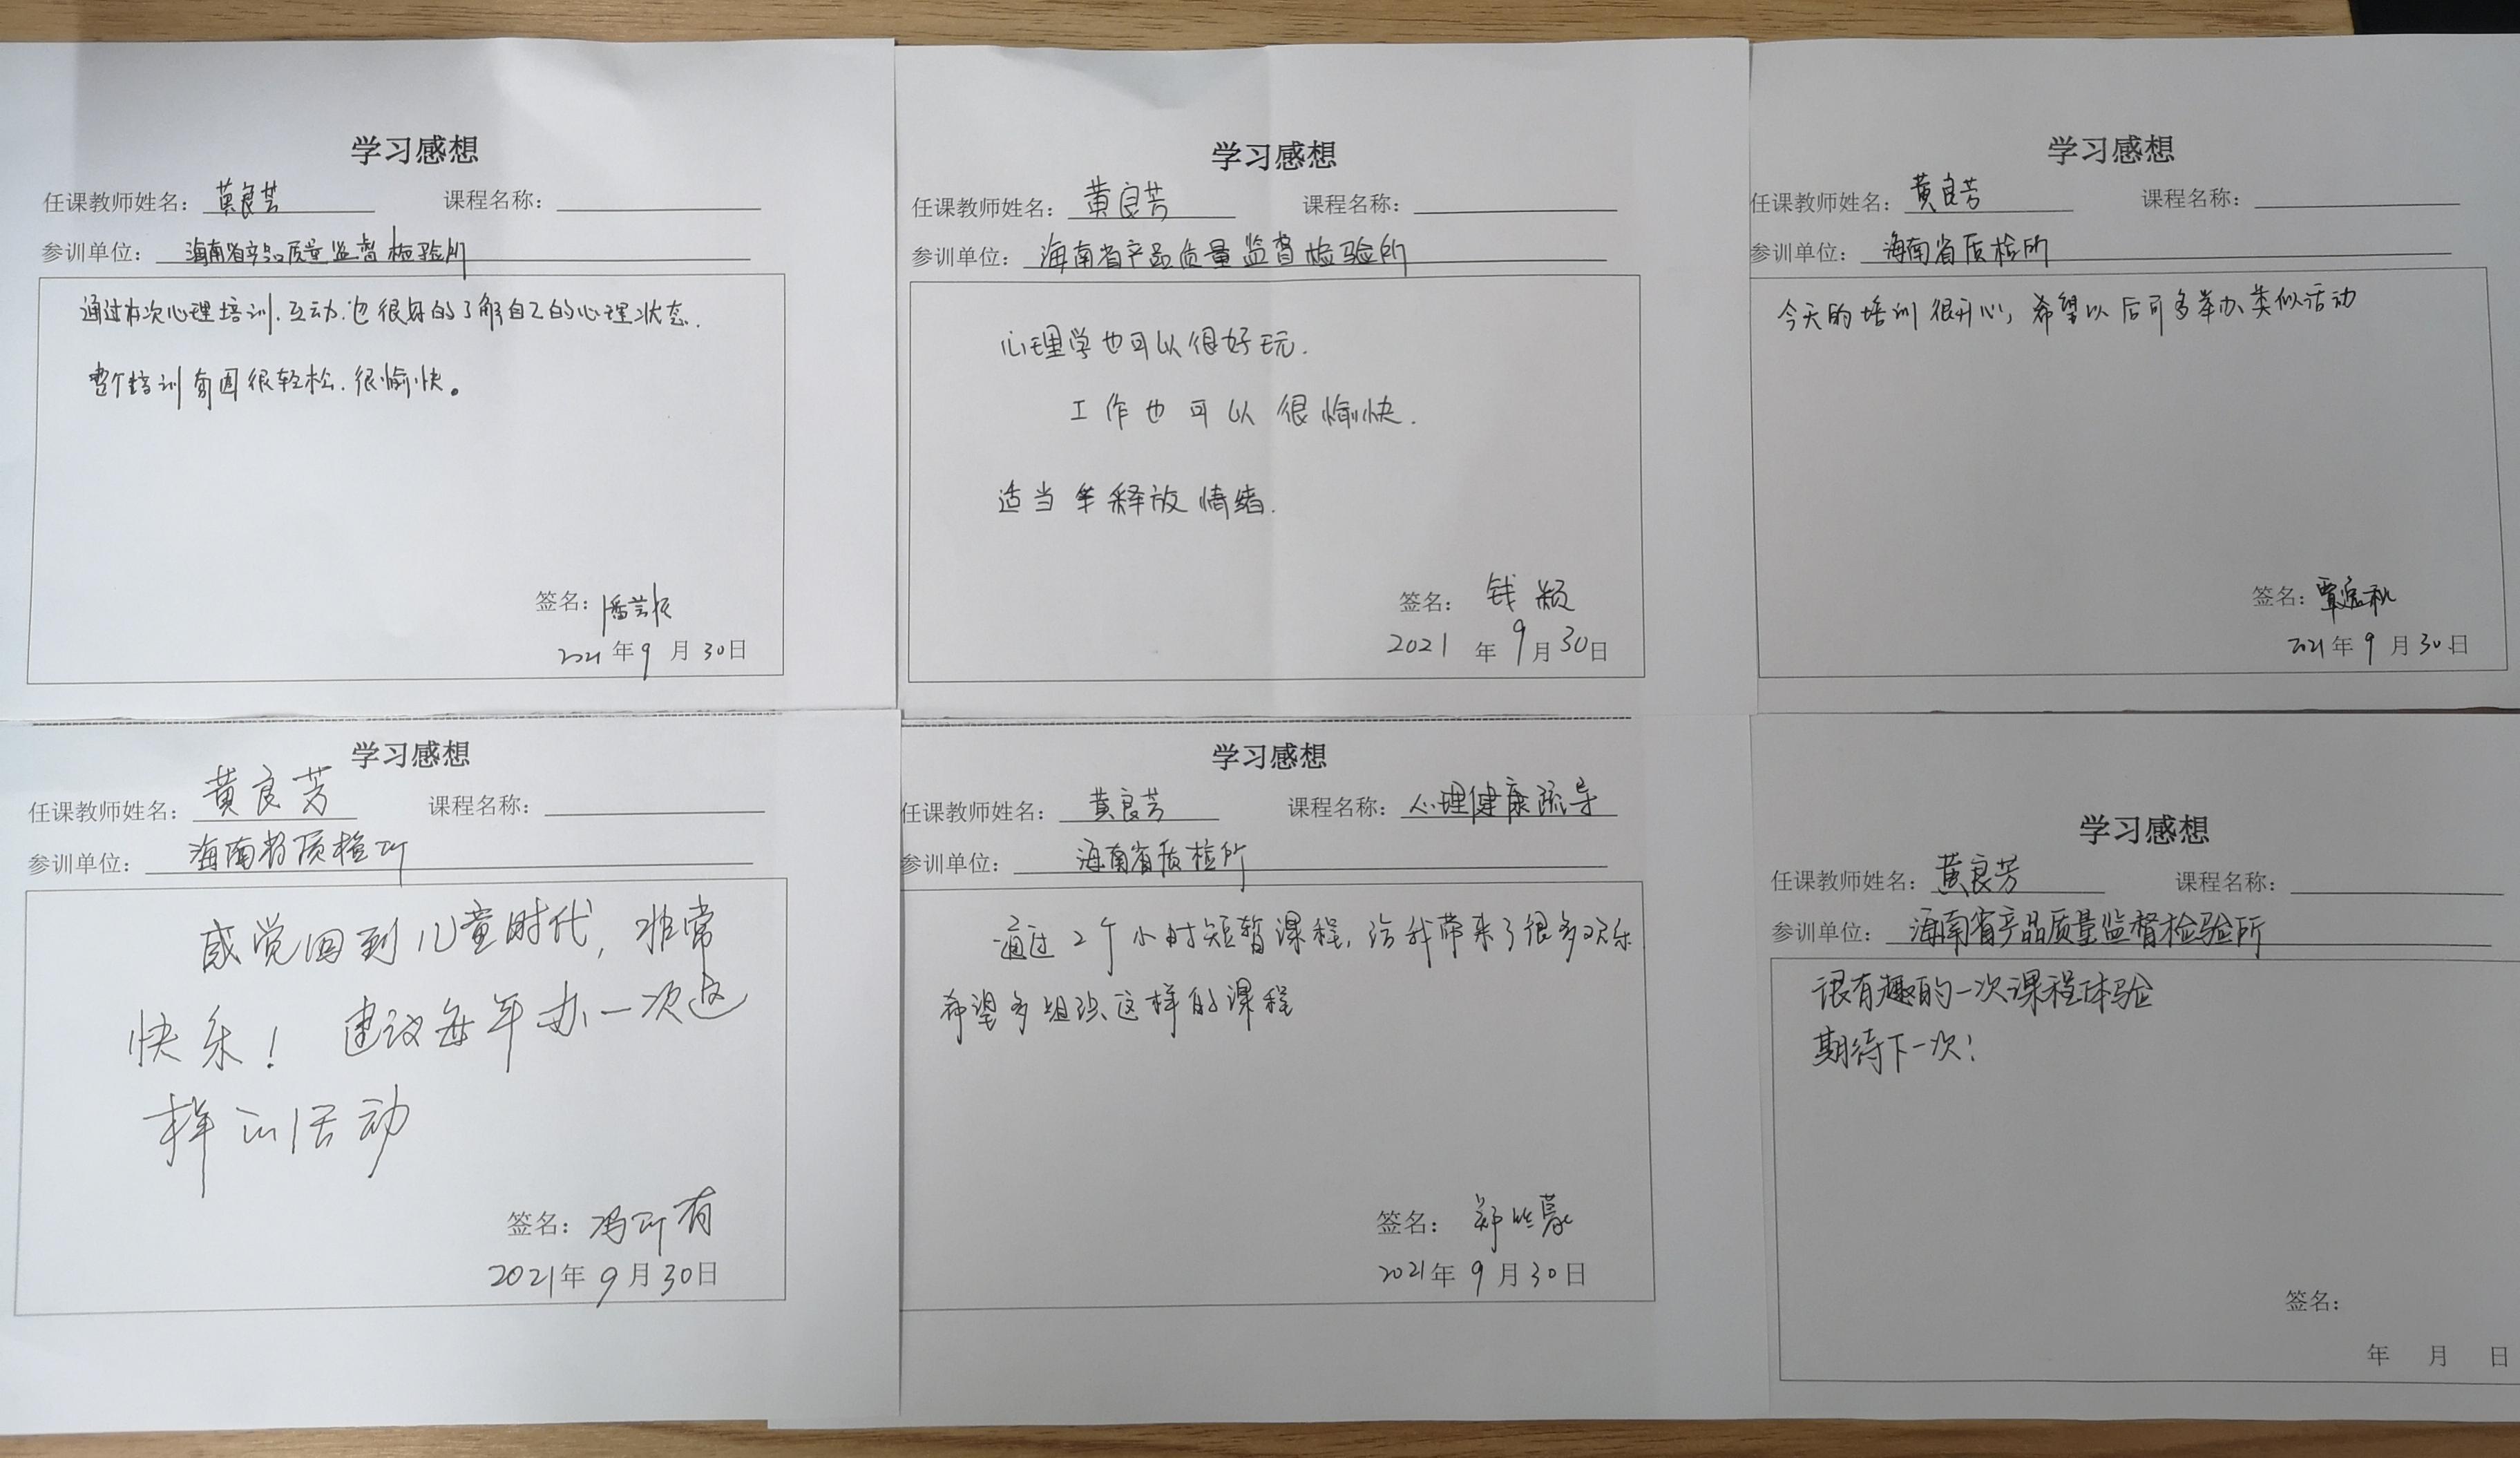 学习感想
任课教师姓名：黄良芳 课程名称：
参训单位：海南省产品质量监督检验所
通过本次心理培训.互动.也很好的了解自己的心理状态.
整个培训氛围很轻松.很愉快。
签名：
2021年9月30日
学习感想
任课教师姓名：黄良芳 课程名称：
参训单位：海南省产品质量监督检验所
心理学也可以很好玩.
工作也可以很愉快.
适当 释放情绪.
签名：钱颖
2021年9月30日
学习感想
任课教师姓名：黄良芳 课程名称：
参训单位：海南省质检所
今天的培训很开心，希望以后可多举办类似活动
签名：覃
2021年9月30日
学习感想
任课教师姓名：黄良芳 课程名称：
参训单位：海南省质检所
感觉回到儿童时代，非常
快乐！建议每年办一次这
样的活动
签名：冯所有
2021年9月30日
学习感想
任课教师姓名：黄良芳 课程名称：心理健康疏导
参训单位：海南省质检所
通过2个小时短暂课程，给我带来了很多欢乐
希望多组织这样的课程
签名：郑
2021年9月30日
学习感想
任课教师姓名：黄良芳 课程名称：
参训单位：海南省产品质量监督检验所
很有趣的一次课程体验
期待下一次！
签名：
年 月 日